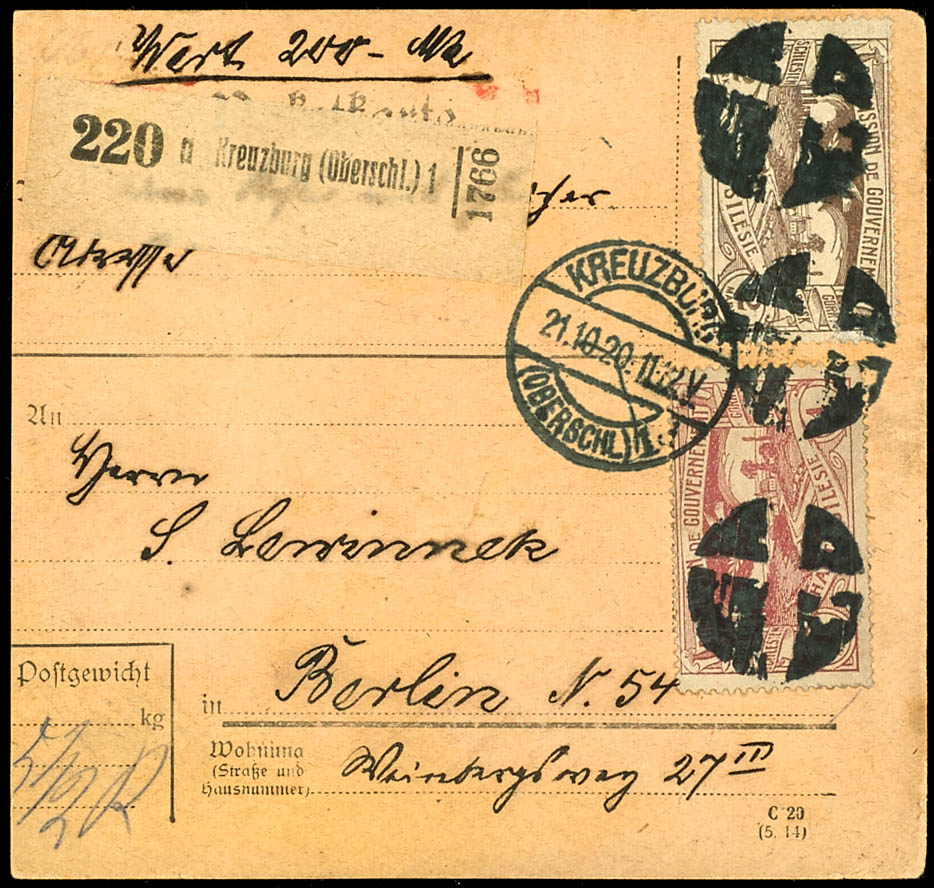 Wert 200 - Mk
220 a Kreuzburg (Oberschl.) 1
1766
Adresse
KREUZBURG
21.10.20. 11-12V
(OBERSCHL) 1
SCHLESIEN
COMMISSION DE GOUVERNEMENT
SILESIE
DE GOUVERNEMENT
HAUTE SILESIE
An
Herrn
S. Lewinnek
Postgewicht
kg
in Berlin N. 54
Wohnung
(Straße und
Hausnummer)
Weinbergsweg 27 III
C 20
(5. 14)